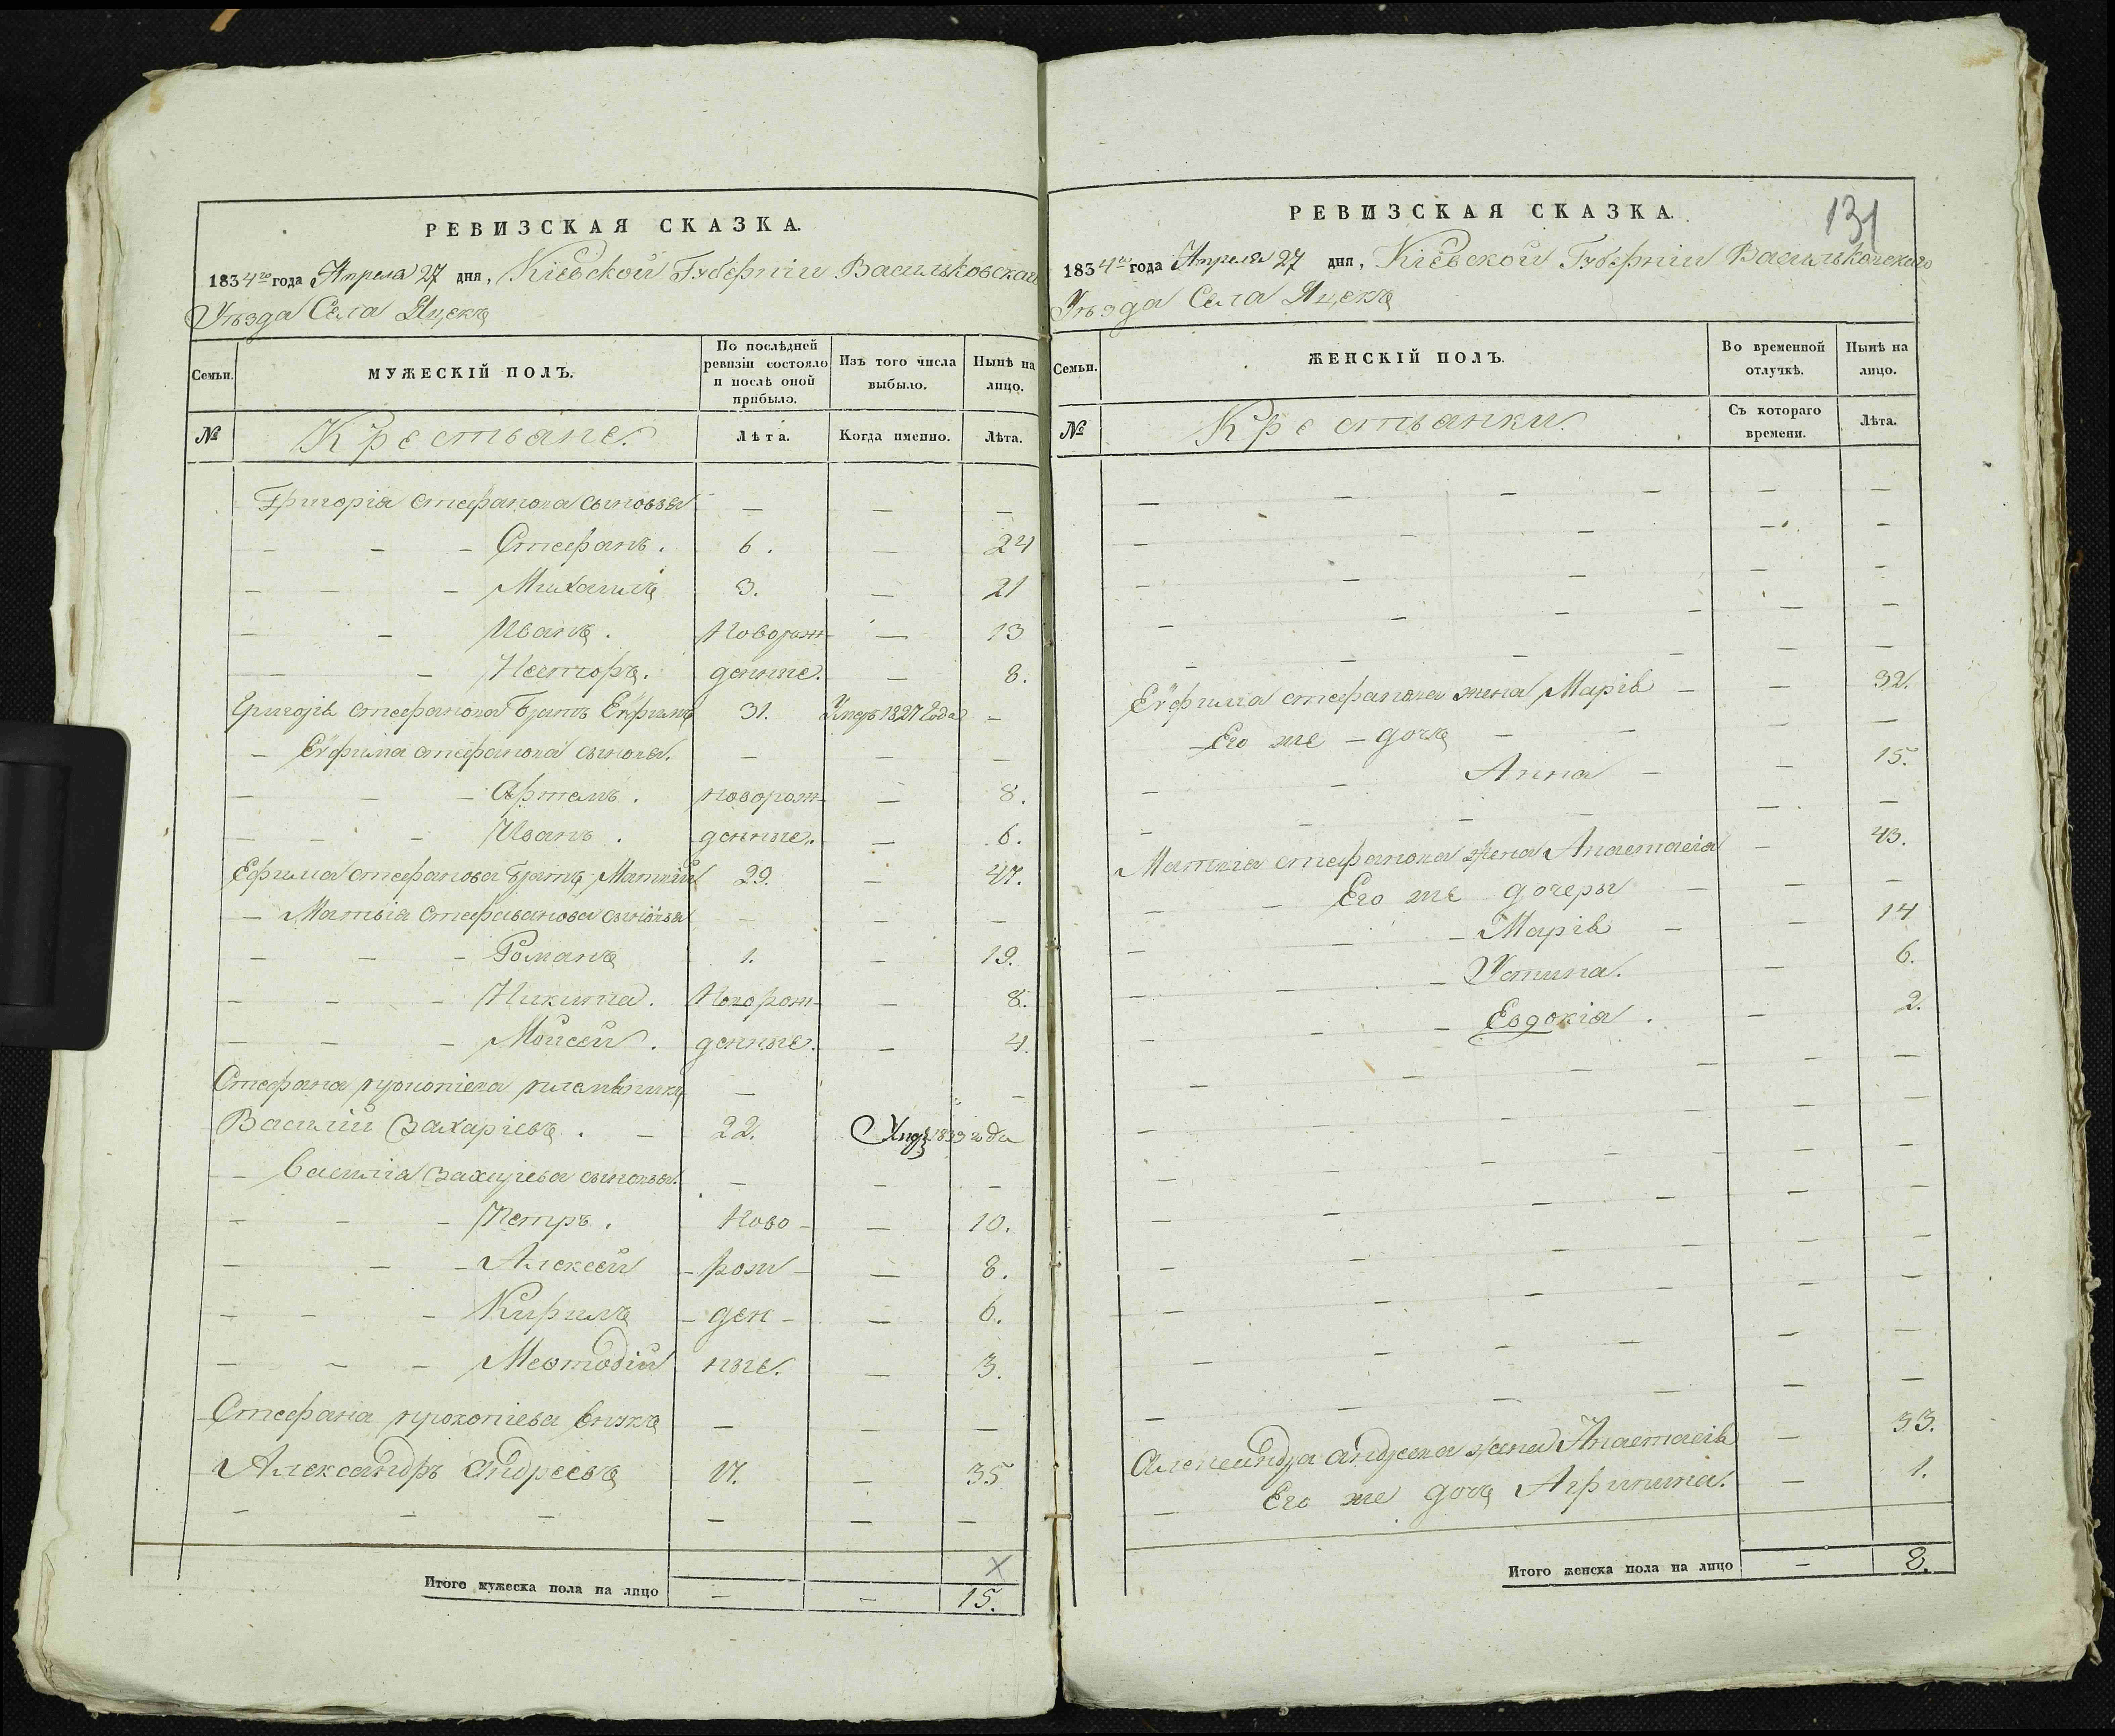 РЕВИЗСКАЯ СКАЗКА.
1834го года Апреля 27 дня, Кіевской Губерніи Васильковскаго
Уѣзда Села Яцекъ
Семьи.
МУЖЕСКІЙ ПОЛЪ.
По послѣдней ревизіи состояло и послѣ оной прибыло.
Изъ того числа выбыло.
Нынѣ на лицо.
№
Крестьяне.
Лѣта.
Когда именно.
Лѣта.
Григорія стефанова сыновья — — —
— — — Стефанъ. 6. — 24
— — — Михаилъ 3. — 21
— — Иванъ. Новорож- — 13
— — Несторъ. денные. — 8.
Григорія стефанова братъ Евфимъ 31. Умеръ 1827 Года —
— Евфима стефанова сыновья. — — —
— — — Артемъ. новорож- — 8.
— — — Иванъ. денные. — 6.
Ефима стефанова братъ Матвій 29. — 47.
— Матвія Стефанова сыновья — — —
— — — Романъ 1. — 19.
— — — Никита. Новорож- — 8.
— — — Мойсей. денные. — 4.
Стефана прокопіева племѣникъ — —
Василій Захаріевъ. — 22. 1833 года
— Василія Захаріева сыновья. — — —
— — — Петръ. Ново- — 10.
— — — Алексей — рож — — 8.
— — — Кирилъ — ден — — 6.
— — — Меѳтодій ные. — 3.
Стефана прокопіева внукъ — — —
Александръ Андреевъ 17. — 35
— — — — — —
Итого мужеска пола на лицо — — 15.
131
РЕВИЗСКАЯ СКАЗКА.
1834го года Апреля 27 дня, Кіевской Губерніи Васильковскаго
Уѣзда Села Яцекъ
Семьи.
ЖЕНСКІЙ ПОЛЪ.
Во временной отлучкѣ.
Нынѣ на лицо.
№
Крестьянки.
Съ котораго времени.
Лѣта.
Евфима стефанова жена Марія — — 32.
Его же — дочь — — — —
— — Анна — — 15.
Матвія стефанова жена Анастасія — 43.
— — Его же дочеры — — —
— — — Марія — — 14
— — Устина. — 6.
— — — Евдокія. — 2.
Александра андреева жена Анастасія — 33.
— Его же дочь Агрипина. — 1.
Итого женска пола на лицо — 8.